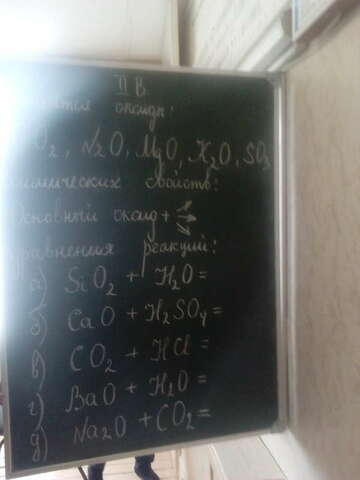 II В.
оксиды:
O₂, N₂O, MgO, K₂O, SO₃
свойств:
Основный оксид +
уравнения реакций:
а) SiO₂ + H₂O =
б) CaO + H₂SO₄ =
в) CO₂ + HCl =
г) BaO + H₂O =
д) Na₂O + CO₂ =